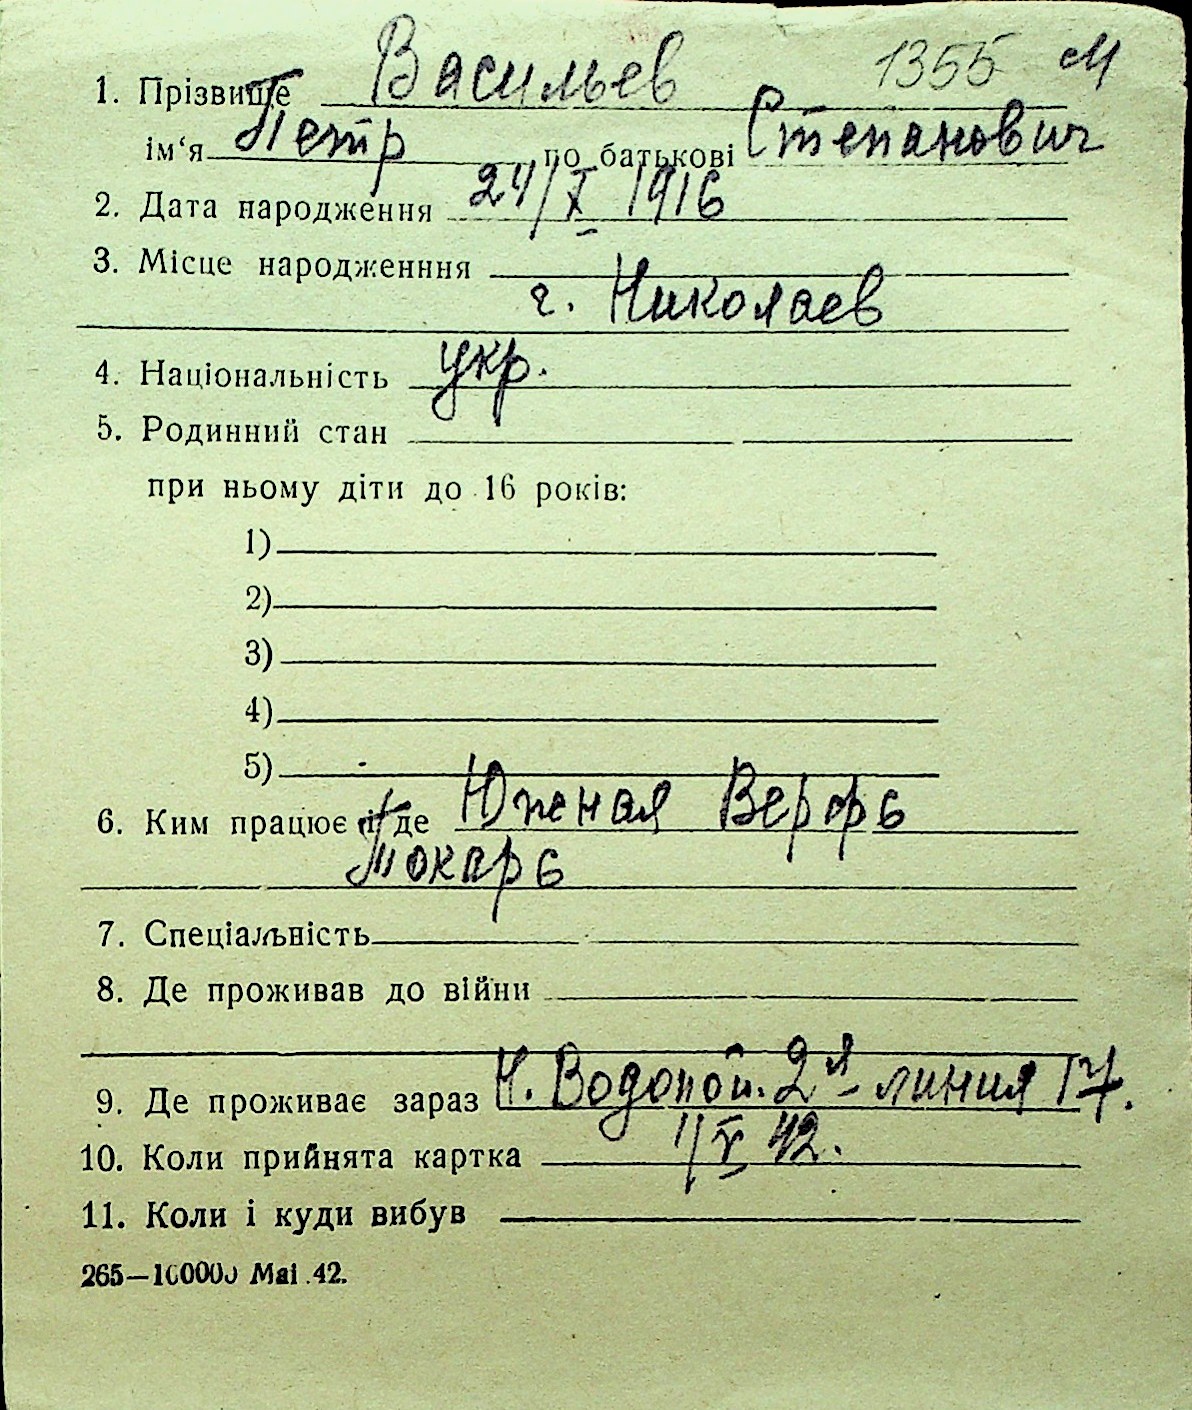 1355 М
1. Прізвище Васильев
ім‘я Петр по батькові Степанович
2. Дата народження 24/X 1916
3. Місце народженння
г. Николаев
4. Національність укр.
5. Родинний стан
при ньому діти до 16 років:
1)
2)
3)
4)
5)
6. Ким працює і де Южная Верфь
Токарь
7. Спеціальність
8. Де проживав до війни
9. Де проживає зараз Н. Водопой. 2я линия 17.
10. Коли прийнята картка 1/V 42.
11. Коли і куди вибув
265—100000 Mai .42.